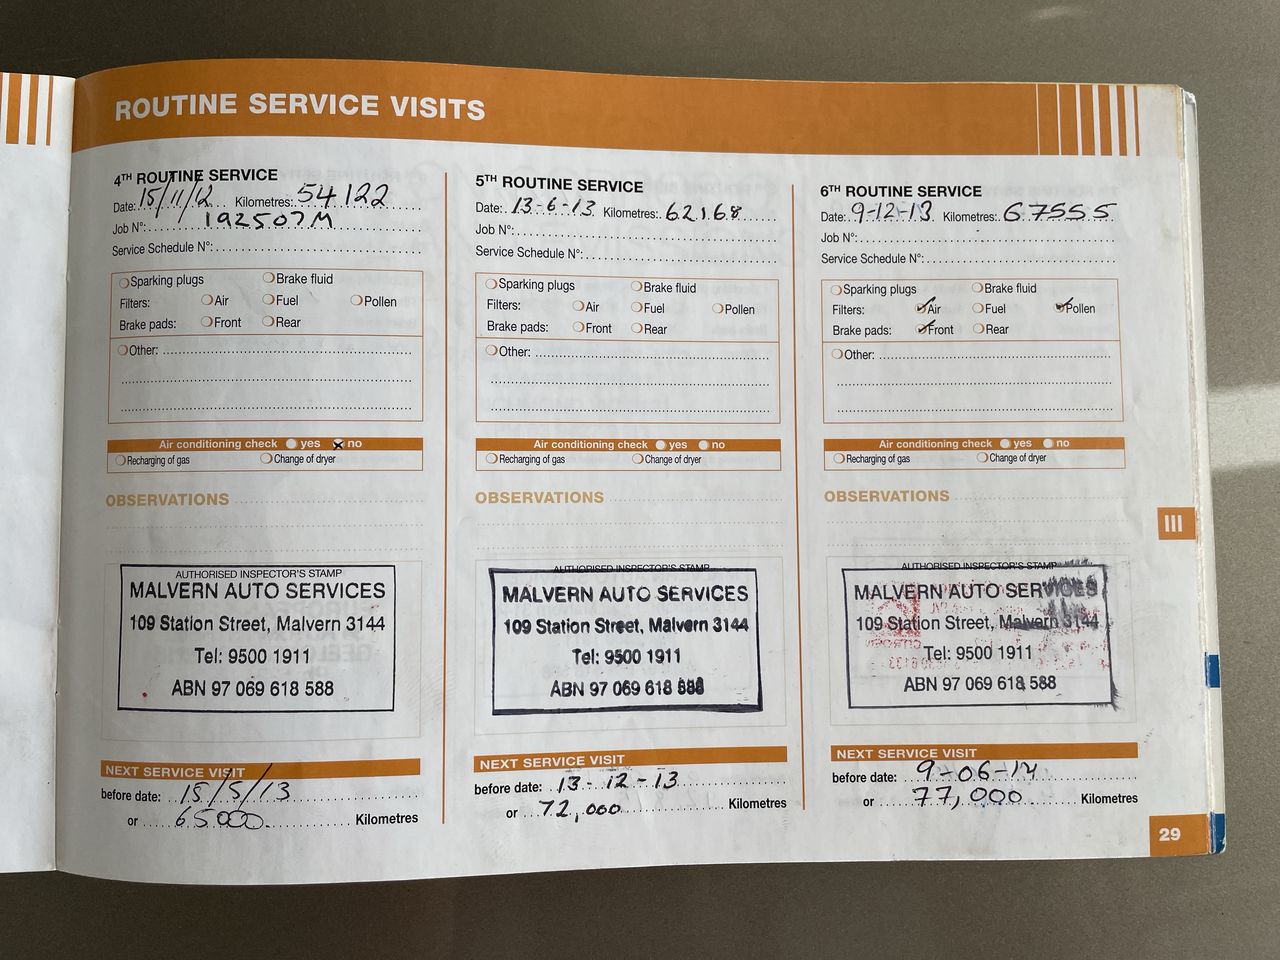 ROUTINE SERVICE VISITS
4TH ROUTINE SERVICE
Date: 15/11/12 Kilometres: 54122
Job N°: 192507M
Service Schedule N°:
Sparking plugs Brake fluid
Filters: Air Fuel Pollen
Brake pads: Front Rear
Other:
Air conditioning check yes no
Recharging of gas Change of dryer
OBSERVATIONS
AUTHORISED INSPECTOR'S STAMP
MALVERN AUTO SERVICES
109 Station Street, Malvern 3144
Tel: 9500 1911
ABN 97 069 618 588
NEXT SERVICE VISIT
before date: 15/5/13
or 65000 Kilometres
5TH ROUTINE SERVICE
Date: 13-6-13 Kilometres: 62168
Job N°:
Service Schedule N°:
Sparking plugs Brake fluid
Filters: Air Fuel Pollen
Brake pads: Front Rear
Other:
Air conditioning check yes no
Recharging of gas Change of dryer
OBSERVATIONS
AUTHORISED INSPECTOR'S STAMP
MALVERN AUTO SERVICES
109 Station Street, Malvern 3144
Tel: 9500 1911
ABN 97 069 618 588
NEXT SERVICE VISIT
before date: 13-12-13
or 72,000 Kilometres
6TH ROUTINE SERVICE
Date: 9-12-13 Kilometres: 67555
Job N°:
Service Schedule N°:
Sparking plugs Brake fluid
Filters: Air Fuel Pollen
Brake pads: Front Rear
Other:
Air conditioning check yes no
Recharging of gas Change of dryer
OBSERVATIONS
AUTHORISED INSPECTOR'S STAMP
MALVERN AUTO SERVICES
109 Station Street, Malvern 3144
Tel: 9500 1911
ABN 97 069 618 588
NEXT SERVICE VISIT
before date: 9-06-14
or 77,000 Kilometres
III
29